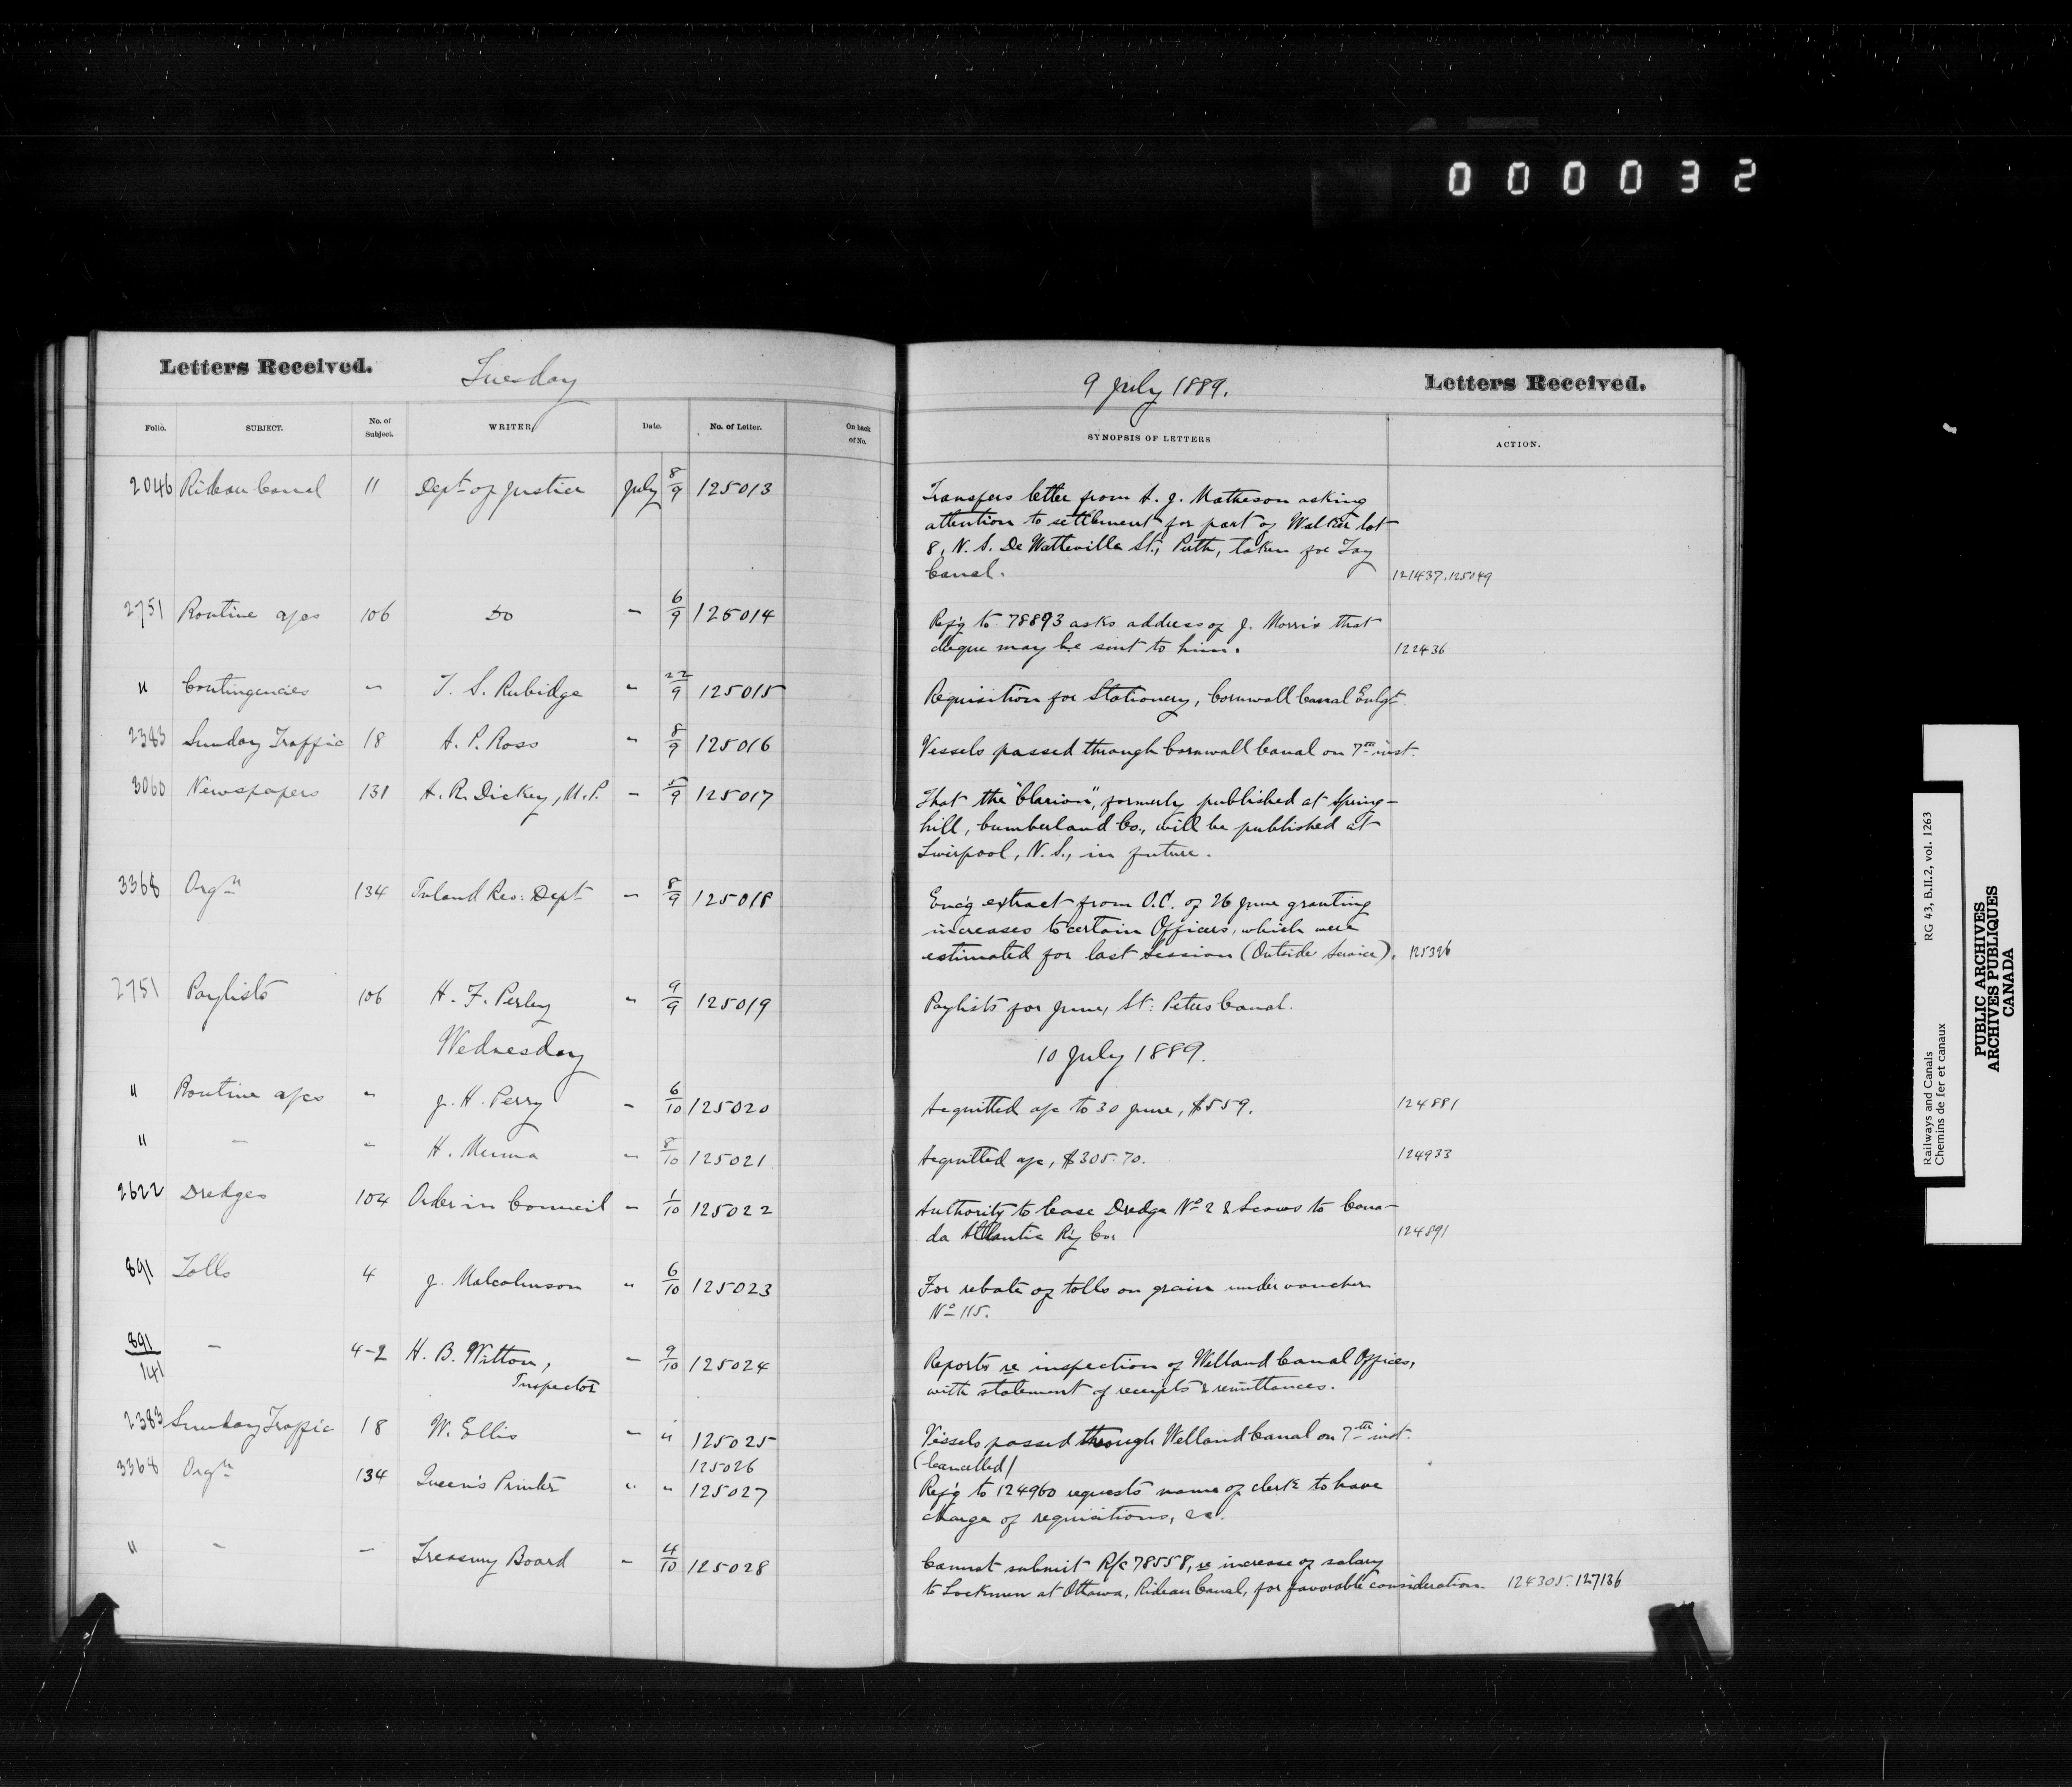 0 0 0 0 3 2
Letters Received. Tuesday
Folio. SUBJECT. No. of Subject. WRITER Date. No. of Letter. On back of No.
2046 Rideau Canal 11 Dept of Justice July 8/9 125013
2751 Routine a/cs 106 Do " 6/9 125014
" Contingencies " T. S. Rubidge " 22/9 125015
2383 Sunday Traffic 18 A. P. Ross " 8/9 125016
3060 Newspapers 131 A. R. Dickey, M.P. " 5/9 125017
3368 Orgn 134 Inland Rev: Dept " 8/9 125018
2751 Paylists 106 H. F. Perley " 9/9 125019
Wednesday
" Routine a/cs " J. H. Perry " 6/10 125020
" " " H. Mumma " 8/10 125021
2622 Dredges 104 Order in Council " 1/10 125022
891 Tolls 4 J. Malcolmson " 6/10 125023
891/141 " 4-2 H. B. Witton, " 9/10 125024
Inspector
2383 Sunday Traffic 18 W. Ellis " " 125025
125026
3368 Orgn 134 Queen's Printer " " 125027
" " " Treasury Board " 4/10 125028
9 July 1889. Letters Received.
SYNOPSIS OF LETTERS ACTION.
Transfers letter from A. J. Matheson asking
attention to settlement for part of Walter lot
8, N. S. De Watteville St., Perth, taken for Tay
Canal. 121437.125049
Ref'g to 78893 asks address of J. Morris that
cheque may be sent to him. 122436
Requisition for Stationery, Cornwall Canal Enlgt
Vessels passed through Cornwall Canal on 7th inst.
That the "Clarion", formerly published at Spring-
hill, Cumberland Co., will be published at
Liverpool, N. S., in future.
Enc'g extract from O.C. of 26 June granting
increases to certain Officers, which were
estimated for last session (Outside Service). 125326
Paylists for June, St. Peters Canal.
10 July 1889.
Acquitted a/c to 30 June, $559. 124881
Acquitted a/c, $305.70. 124933
Authority to lease Dredge No 2 & Scows to Cana-
da Atlantic Ry Co. 124891
For rebate of tolls on grain under voucher
No 115.
Reports re inspection of Welland Canal Offices,
with statement of receipts & remittances.
Vessels passed through Welland Canal on 7th inst.
(Cancelled)
Ref'g to 124960 requests name of clerk to have
charge of requisitions, &c.
Cannot submit R/c 78558, re increase of salary
to Lockmen at Ottawa, Rideau Canal, for favorable consideration. 124305.127136
Railways and Canals RG 43, B.II.2, vol. 1263
Chemins de fer et canaux
PUBLIC ARCHIVES
ARCHIVES PUBLIQUES
CANADA